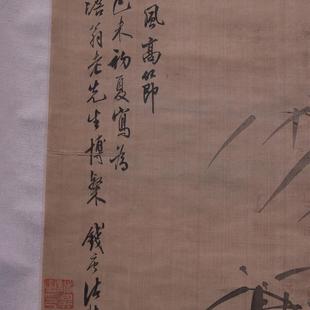 風高節
己未初夏寫為
翁老先生博粲
錢